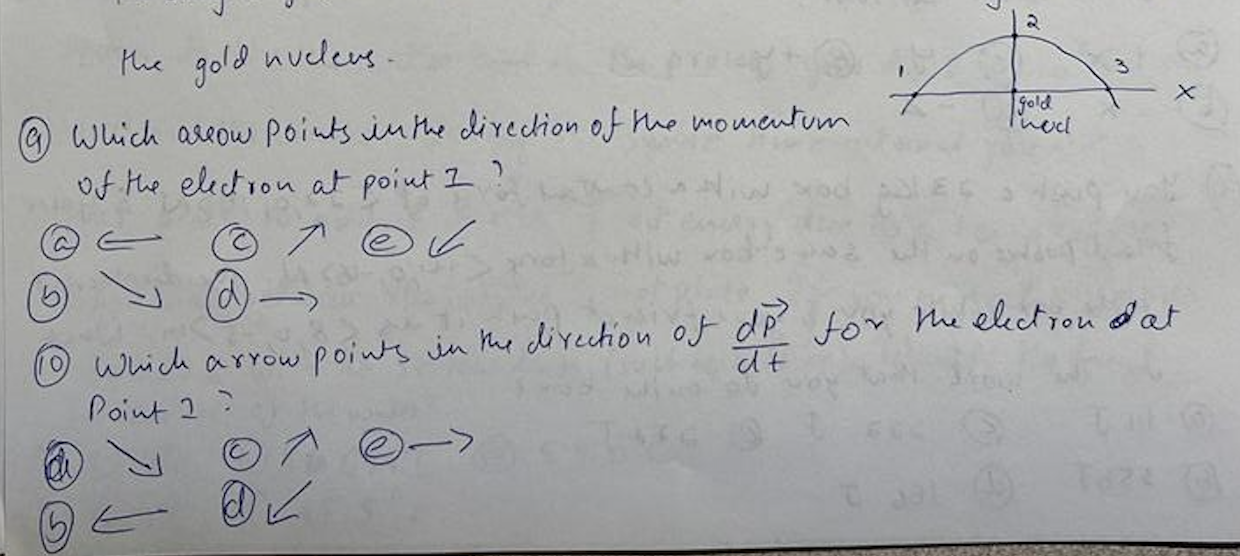 the gold nucleus.
2
1
3
x
gold
nucl
⑨ Which arrow points in the direction of the momentum
of the electron at point 1 ?
ⓐ ← ⓒ ↗ ⓔ ↙
ⓑ ↘ ⓓ →
⑩ Which arrow points in the direction of dp⃗/dt for the electron at
Point 1 ?
ⓐ ↘ ⓒ ↗ ⓔ →
ⓑ ← ⓓ ↙